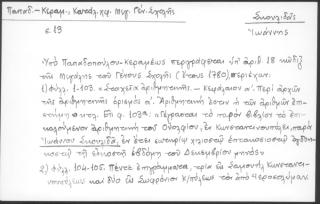 Παπαδ. - Κεραμ., Καταλ. χφ. Μεγ. Γεν. Σχολῆς
Σκουλίδᾶς
σ. 19
Ἰωάννης
Ὑπὸ Παπαδοπούλου-Κεραμέως περιγράφεται ὑπ' ἀριθ. 18 κῶδιξ
τῆς Μεγάλης τοῦ Γένους Σχολῆς (ἔτους 1780), περιέχων:
1) Φύλλ. 1-103. «Στοιχεῖα ἀριθμητικῆς. - Κεφάλαιον α'. Περὶ ἀρχῶν
τῆς ἀριθμητικῆς ὁρισμὸς α'. Ἀριθμητική ἐστιν ἡ τῶν ἀριθμῶν ἐπι-
στήμη» κτλ. Ἐν φ. 103α: «Γέγραπται τὸ παρὸν βιβλίον τὸ ἐπι-
γραφόμενον ἀριθμητικὴ τοῦ Οὐολφίου, ἐν Κωνσταντινουπόλει, παρὰ
Ἰωάννου Σκουλιδᾶ, ἐν ἔτει σωτηρίῳ χιλιοστῷ ἑπτακοσιοστῷ ὀγδοη-
κοστῷ τῇ εἰκοστῇ ἑβδόμῃ τοῦ Δεκεμβρίου μηνός»
2) Φύλλ. 104-105. Πέντε ἐπιγράμματα, τρία εἰς Σαμουὴλ Κωνσταντι-
νουπόλεως καὶ δύο εἰς Σωφρόνιον τὸν ἀπὸ Ἱεροσολύμων.